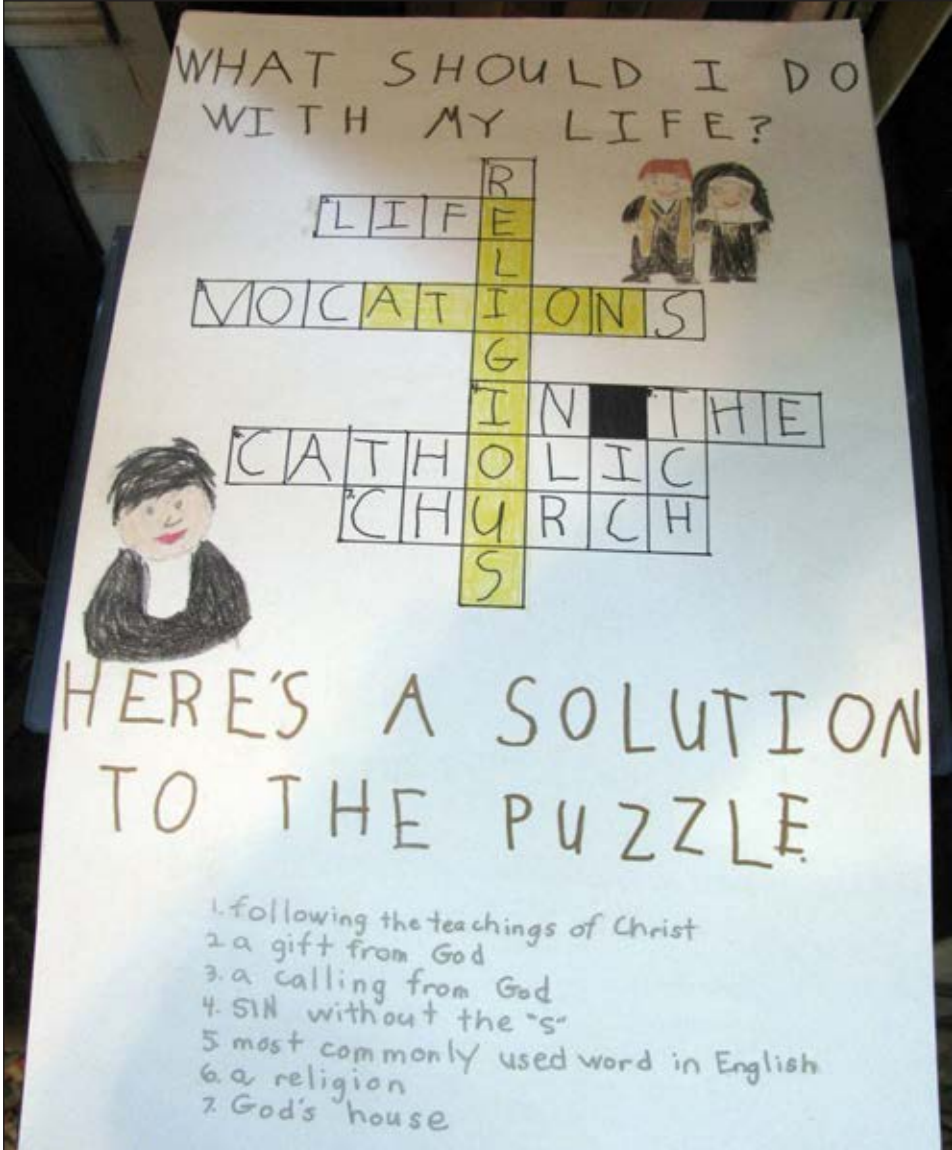 WHAT SHOULD I DO
WITH MY LIFE?
R
LIFE
L
VOCATIONS
G
IN THE
CATHOLIC
CHURCH
S
HERE'S A SOLUTION
TO THE PUZZLE
1. following the teachings of Christ
2 a gift from God
3. a calling from God
4. SIN without the "s"
5 most commonly used word in English
6. a religion
7. God's house